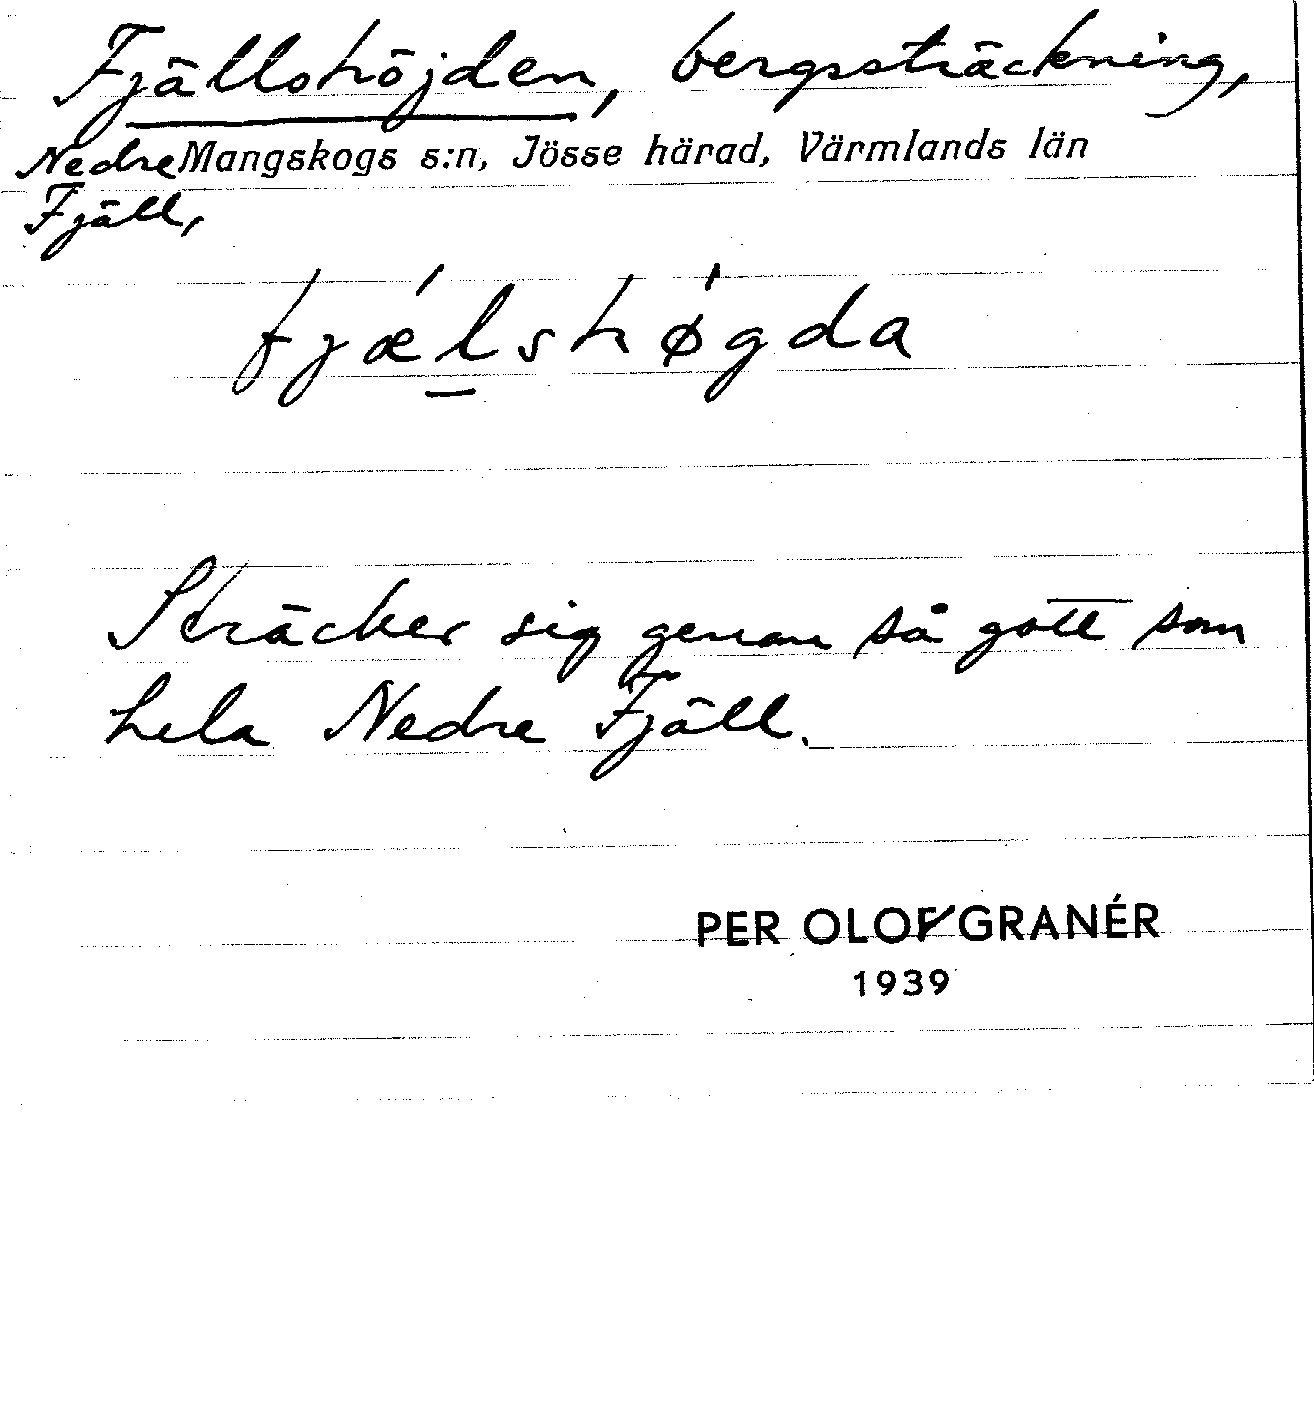 Fjällshöjden, bergssträckning,
Nedre Mangskogs s:n, Jösse härad, Värmlands län
Fjäll,
fjæ´l̲shø`gda
Sträcker sig genom så gott som
hela Nedre Fjäll.
PER OLOF GRANÉR
1939